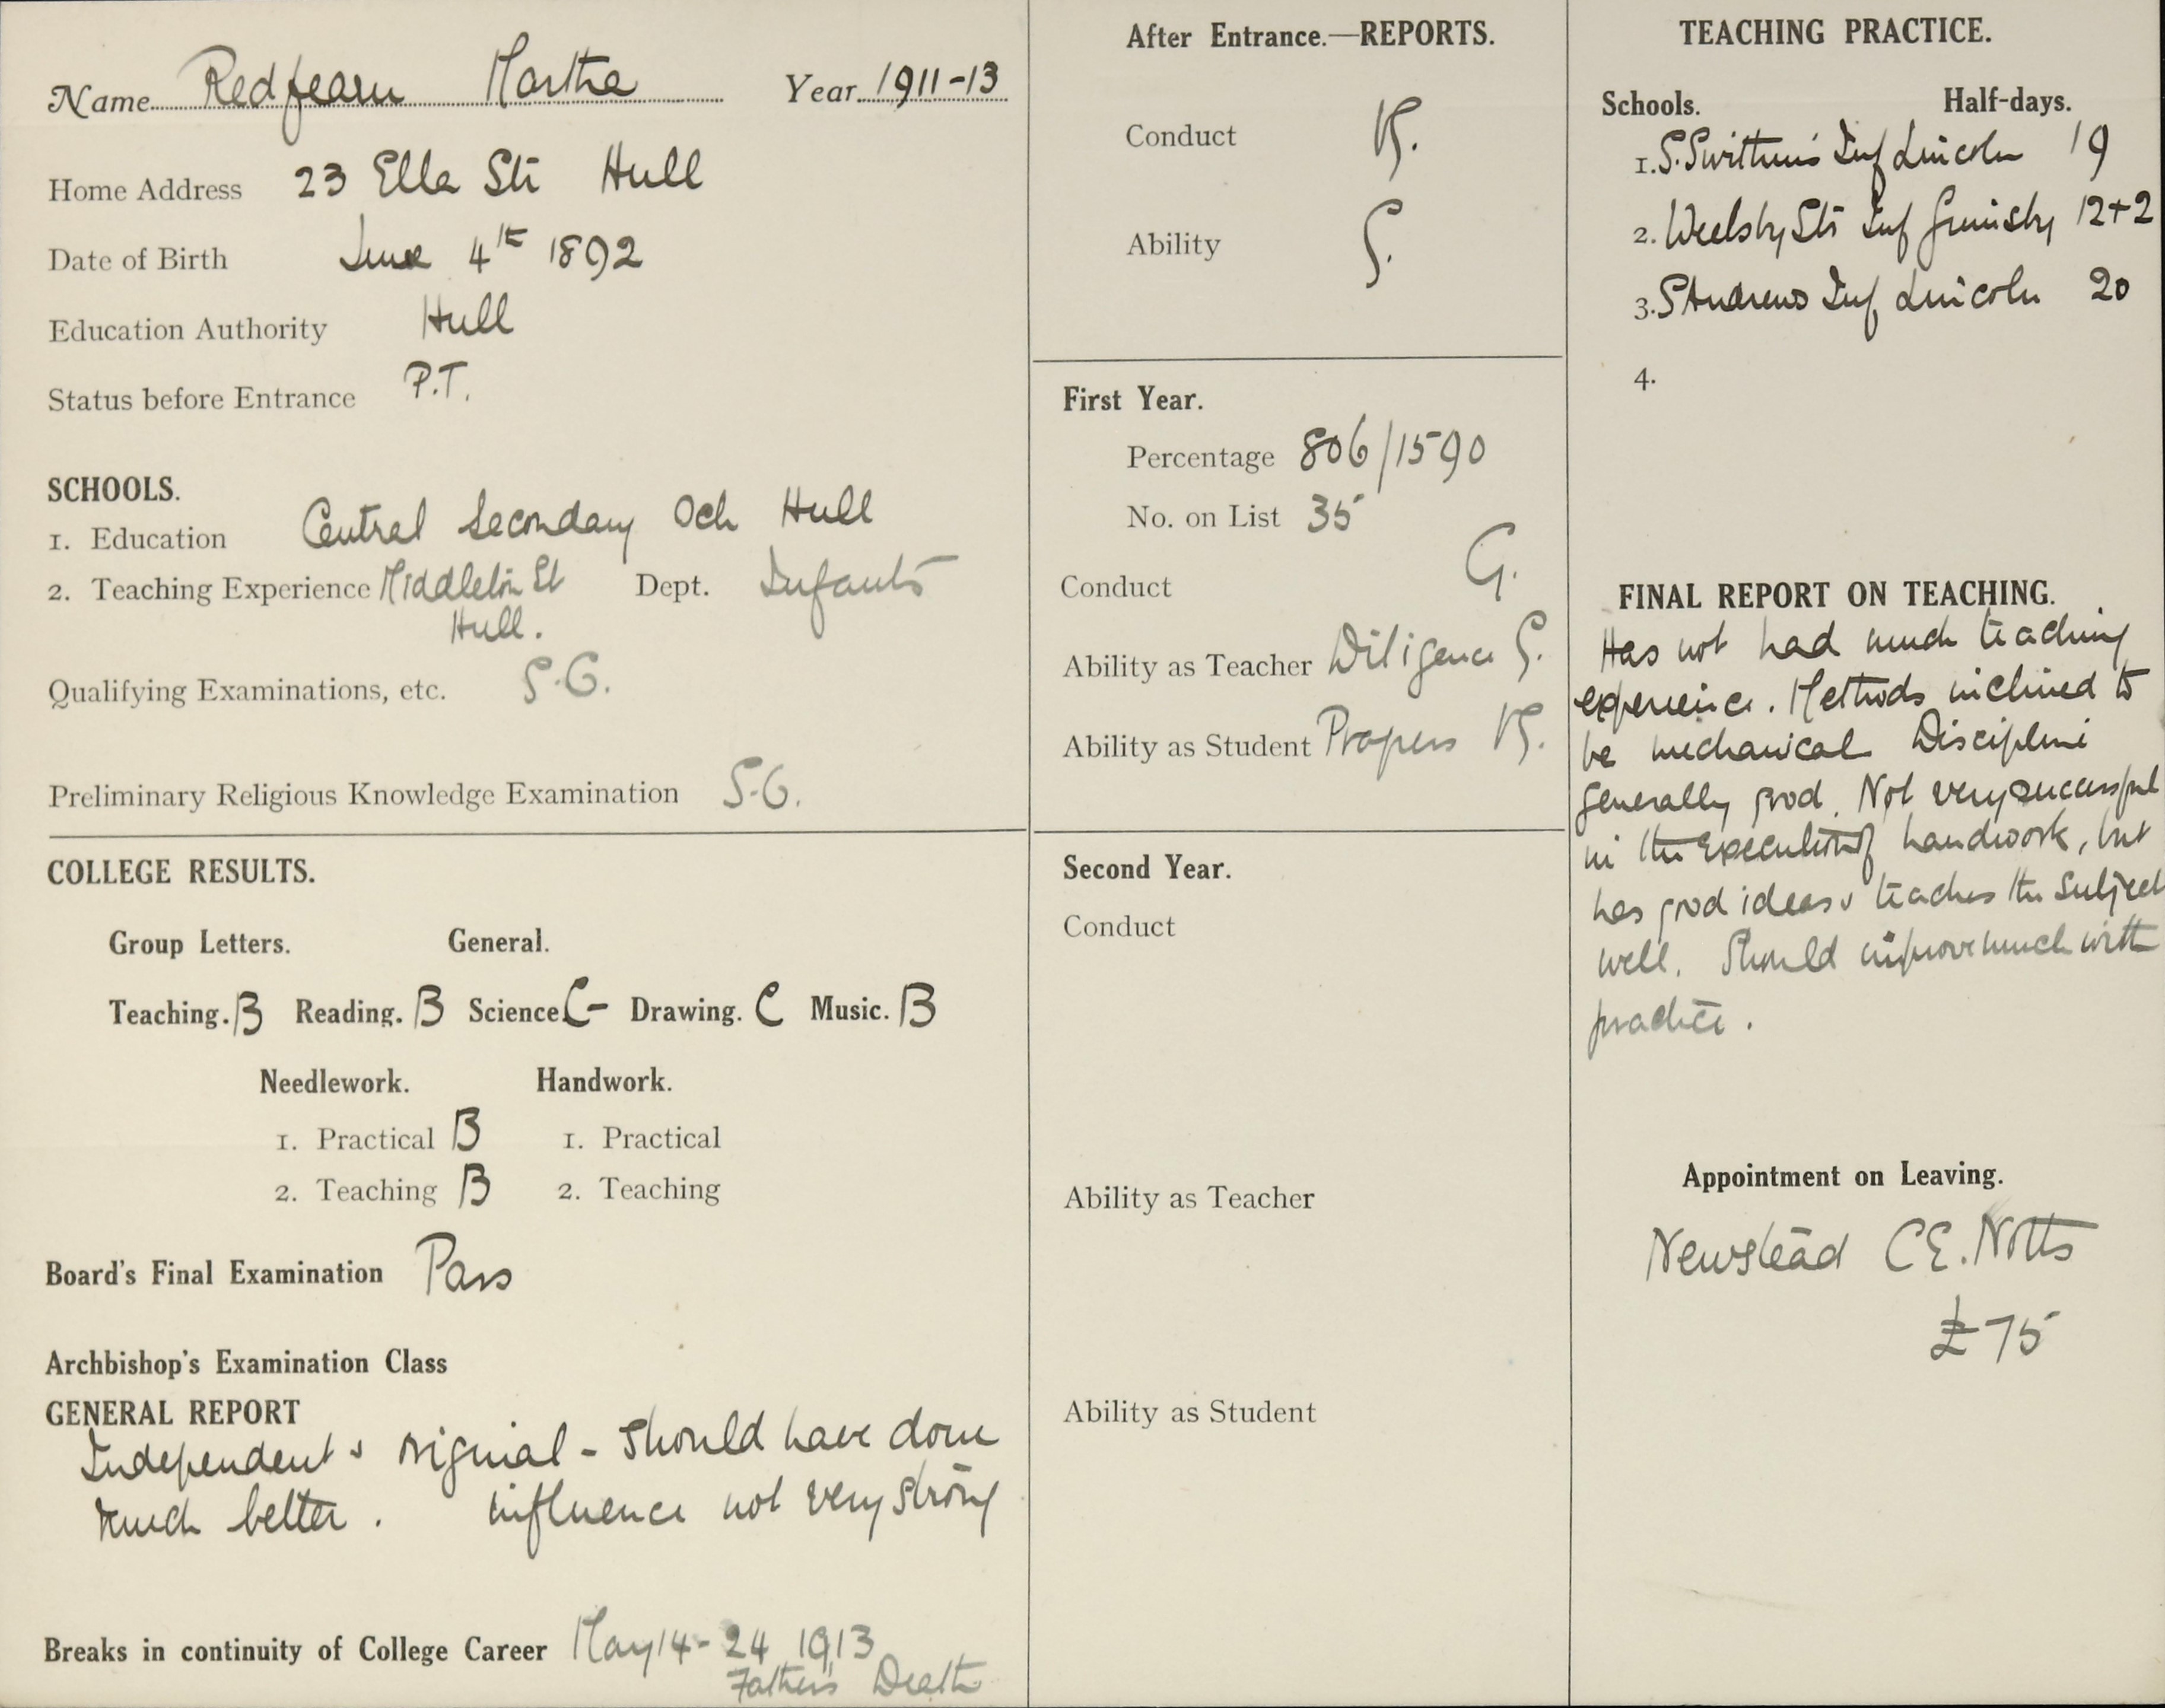 Name Redfearn Martha Year 1911-13
Home Address 23 Ella St: Hull
Date of Birth June 4th 1892
Education Authority Hull
Status before Entrance P.T.
SCHOOLS.
1. Education Central Secondary Sch Hull
2. Teaching Experience Middleton St Dept. Infants
Hull.
Qualifying Examinations, etc. S.G.
Preliminary Religious Knowledge Examination S.G.
COLLEGE RESULTS.
Group Letters. General.
Teaching. B Reading. B Science. C- Drawing. C Music. B
Needlework. Handwork.
1. Practical B 1. Practical
2. Teaching B 2. Teaching
Board's Final Examination Pass
Archbishop's Examination Class
GENERAL REPORT
Independent & original - should have done
much better. influence not very strong
Breaks in continuity of College Career May 14-24 1913
Father's Death
After Entrance.—REPORTS.
Conduct
Ability
First Year.
Percentage 806/1590
No. on List 35
Conduct G.
Ability as Teacher Diligence
Ability as Student Progress
Second Year.
Conduct
Ability as Teacher
Ability as Student
TEACHING PRACTICE.
Schools. Half-days.
1. S. Swithin's Inf Lincoln 19
2. Weelsby St: Inf Grimsby 12+2
3. S Andrews Inf Lincoln 20
4.
FINAL REPORT ON TEACHING.
Has not had much teaching
experience. Methods inclined to
be mechanical Discipline
generally good. Not very successful
in the execution of handwork, but
has good ideas & teaches the subject
well. Should improve much with
practice.
Appointment on Leaving.
Newstead C.E. Notts
£75